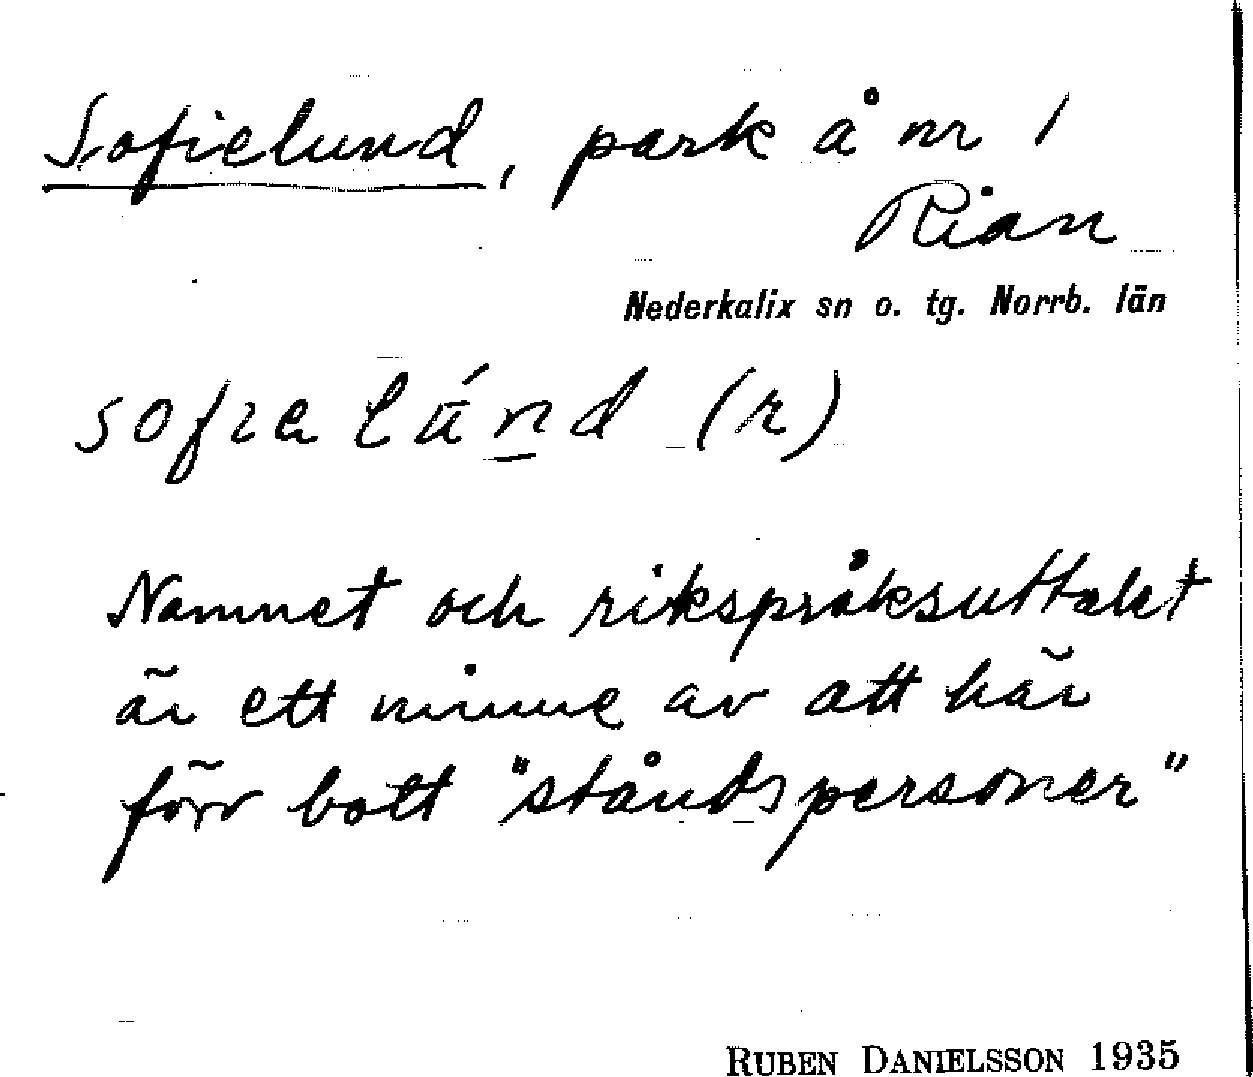 Sofielund, park å nr 1
Rian
Nederkalix sn o. tg. Norrb. län
sofia lúnd (r)
Namnet och rikspråksuttalet
är ett minne av att här
förr bott "ståndspersoner"
RUBEN DANIELSSON 1935